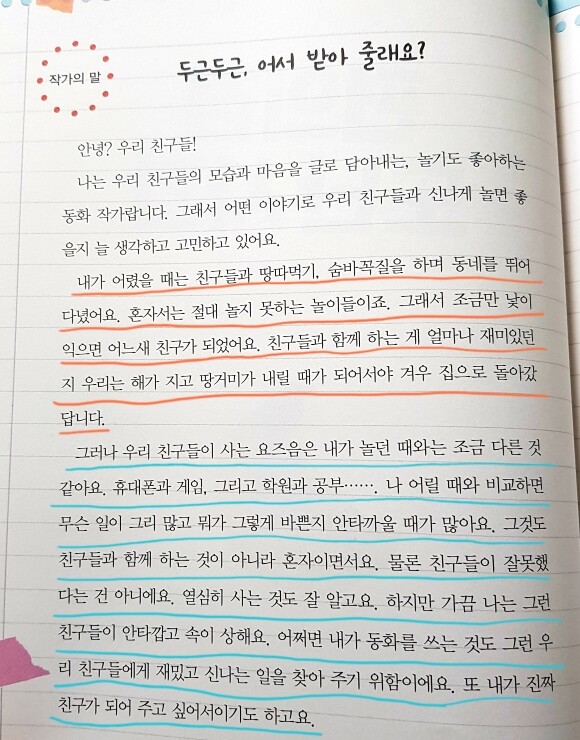 작가의 말
두근두근, 어서 받아 줄래요?
안녕? 우리 친구들!
나는 우리 친구들의 모습과 마음을 글로 담아내는, 놀기도 좋아하는
동화 작가랍니다. 그래서 어떤 이야기로 우리 친구들과 신나게 놀면 좋
을지 늘 생각하고 고민하고 있어요.
내가 어렸을 때는 친구들과 땅따먹기, 숨바꼭질을 하며 동네를 뛰어
다녔어요. 혼자서는 절대 놀지 못하는 놀이들이죠. 그래서 조금만 낯이
익으면 어느새 친구가 되었어요. 친구들과 함께 하는 게 얼마나 재미있던
지 우리는 해가 지고 땅거미가 내릴 때가 되어서야 겨우 집으로 돌아갔
답니다.
그러나 우리 친구들이 사는 요즈음은 내가 놀던 때와는 조금 다른 것
같아요. 휴대폰과 게임, 그리고 학원과 공부……. 나 어릴 때와 비교하면
무슨 일이 그리 많고 뭐가 그렇게 바쁜지 안타까울 때가 많아요. 그것도
친구들과 함께 하는 것이 아니라 혼자이면서요. 물론 친구들이 잘못했
다는 건 아니에요. 열심히 사는 것도 잘 알고요. 하지만 가끔 나는 그런
친구들이 안타깝고 속이 상해요. 어쩌면 내가 동화를 쓰는 것도 그런 우
리 친구들에게 재밌고 신나는 일을 찾아 주기 위함이에요. 또 내가 진짜
친구가 되어 주고 싶어서이기도 하고요.